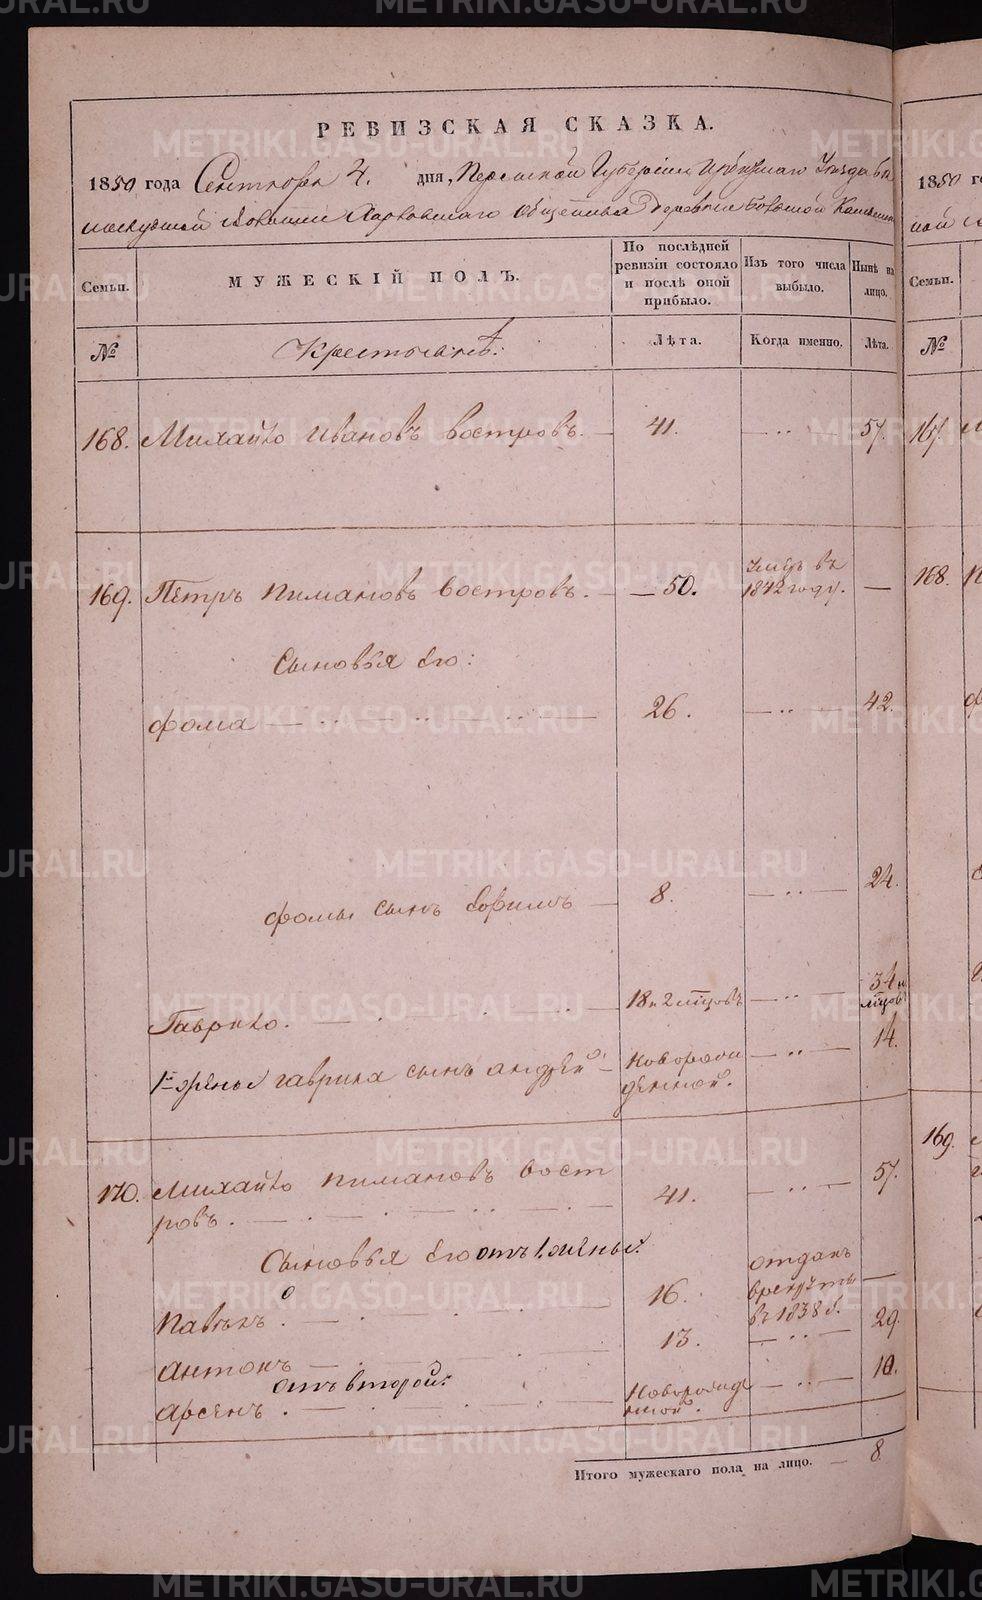 METRIKI.GASO-URAL.RU
РЕВИЗСКАЯ СКАЗКА.
1850 года Сентября 4. дня, Пермской Губернии Ирбитскаго Уезда
Харловскаго деревни Большой
Семьи. МУЖЕСКІЙ ПОЛЪ. По послѣдней ревизіи состояло и послѣ оной прибыло. Изъ того числа выбыло. Нынѣ на лицо.
№ Крестьянѣ: Лѣта. Когда именно. Лѣта.
168. Михайло Ивановъ Востровъ. — 41. — ·· — 57.
169. Петръ Пимановъ Востровъ. — 50. умеръ въ 1842 году. —
Сыновья Его:
Фома — 26. — ·· — 42.
Фомы сынъ Ефимъ — 8. — ·· — 24.
Гаврило. — 18 и 2 мѣсцовъ — ·· — 34 и мѣсцовъ
1й жены гаврила сынъ андрей — новорожденной. — ·· — 14.
170. Михайло Пимановъ Вост
ровъ. — 41. — ·· — 57.
Сыновья Его отъ 1. жены:
Павелъ. — 16. отданъ в рекруты въ 1838 г. —
Антонъ — 13. — ·· — 29.
отъ второй:
Арсенъ. — новорожденной. — ·· — 10.
Итого мужескаго пола на лицо. — 8.
1850 г
Семьи.
№
167.
168.
169.